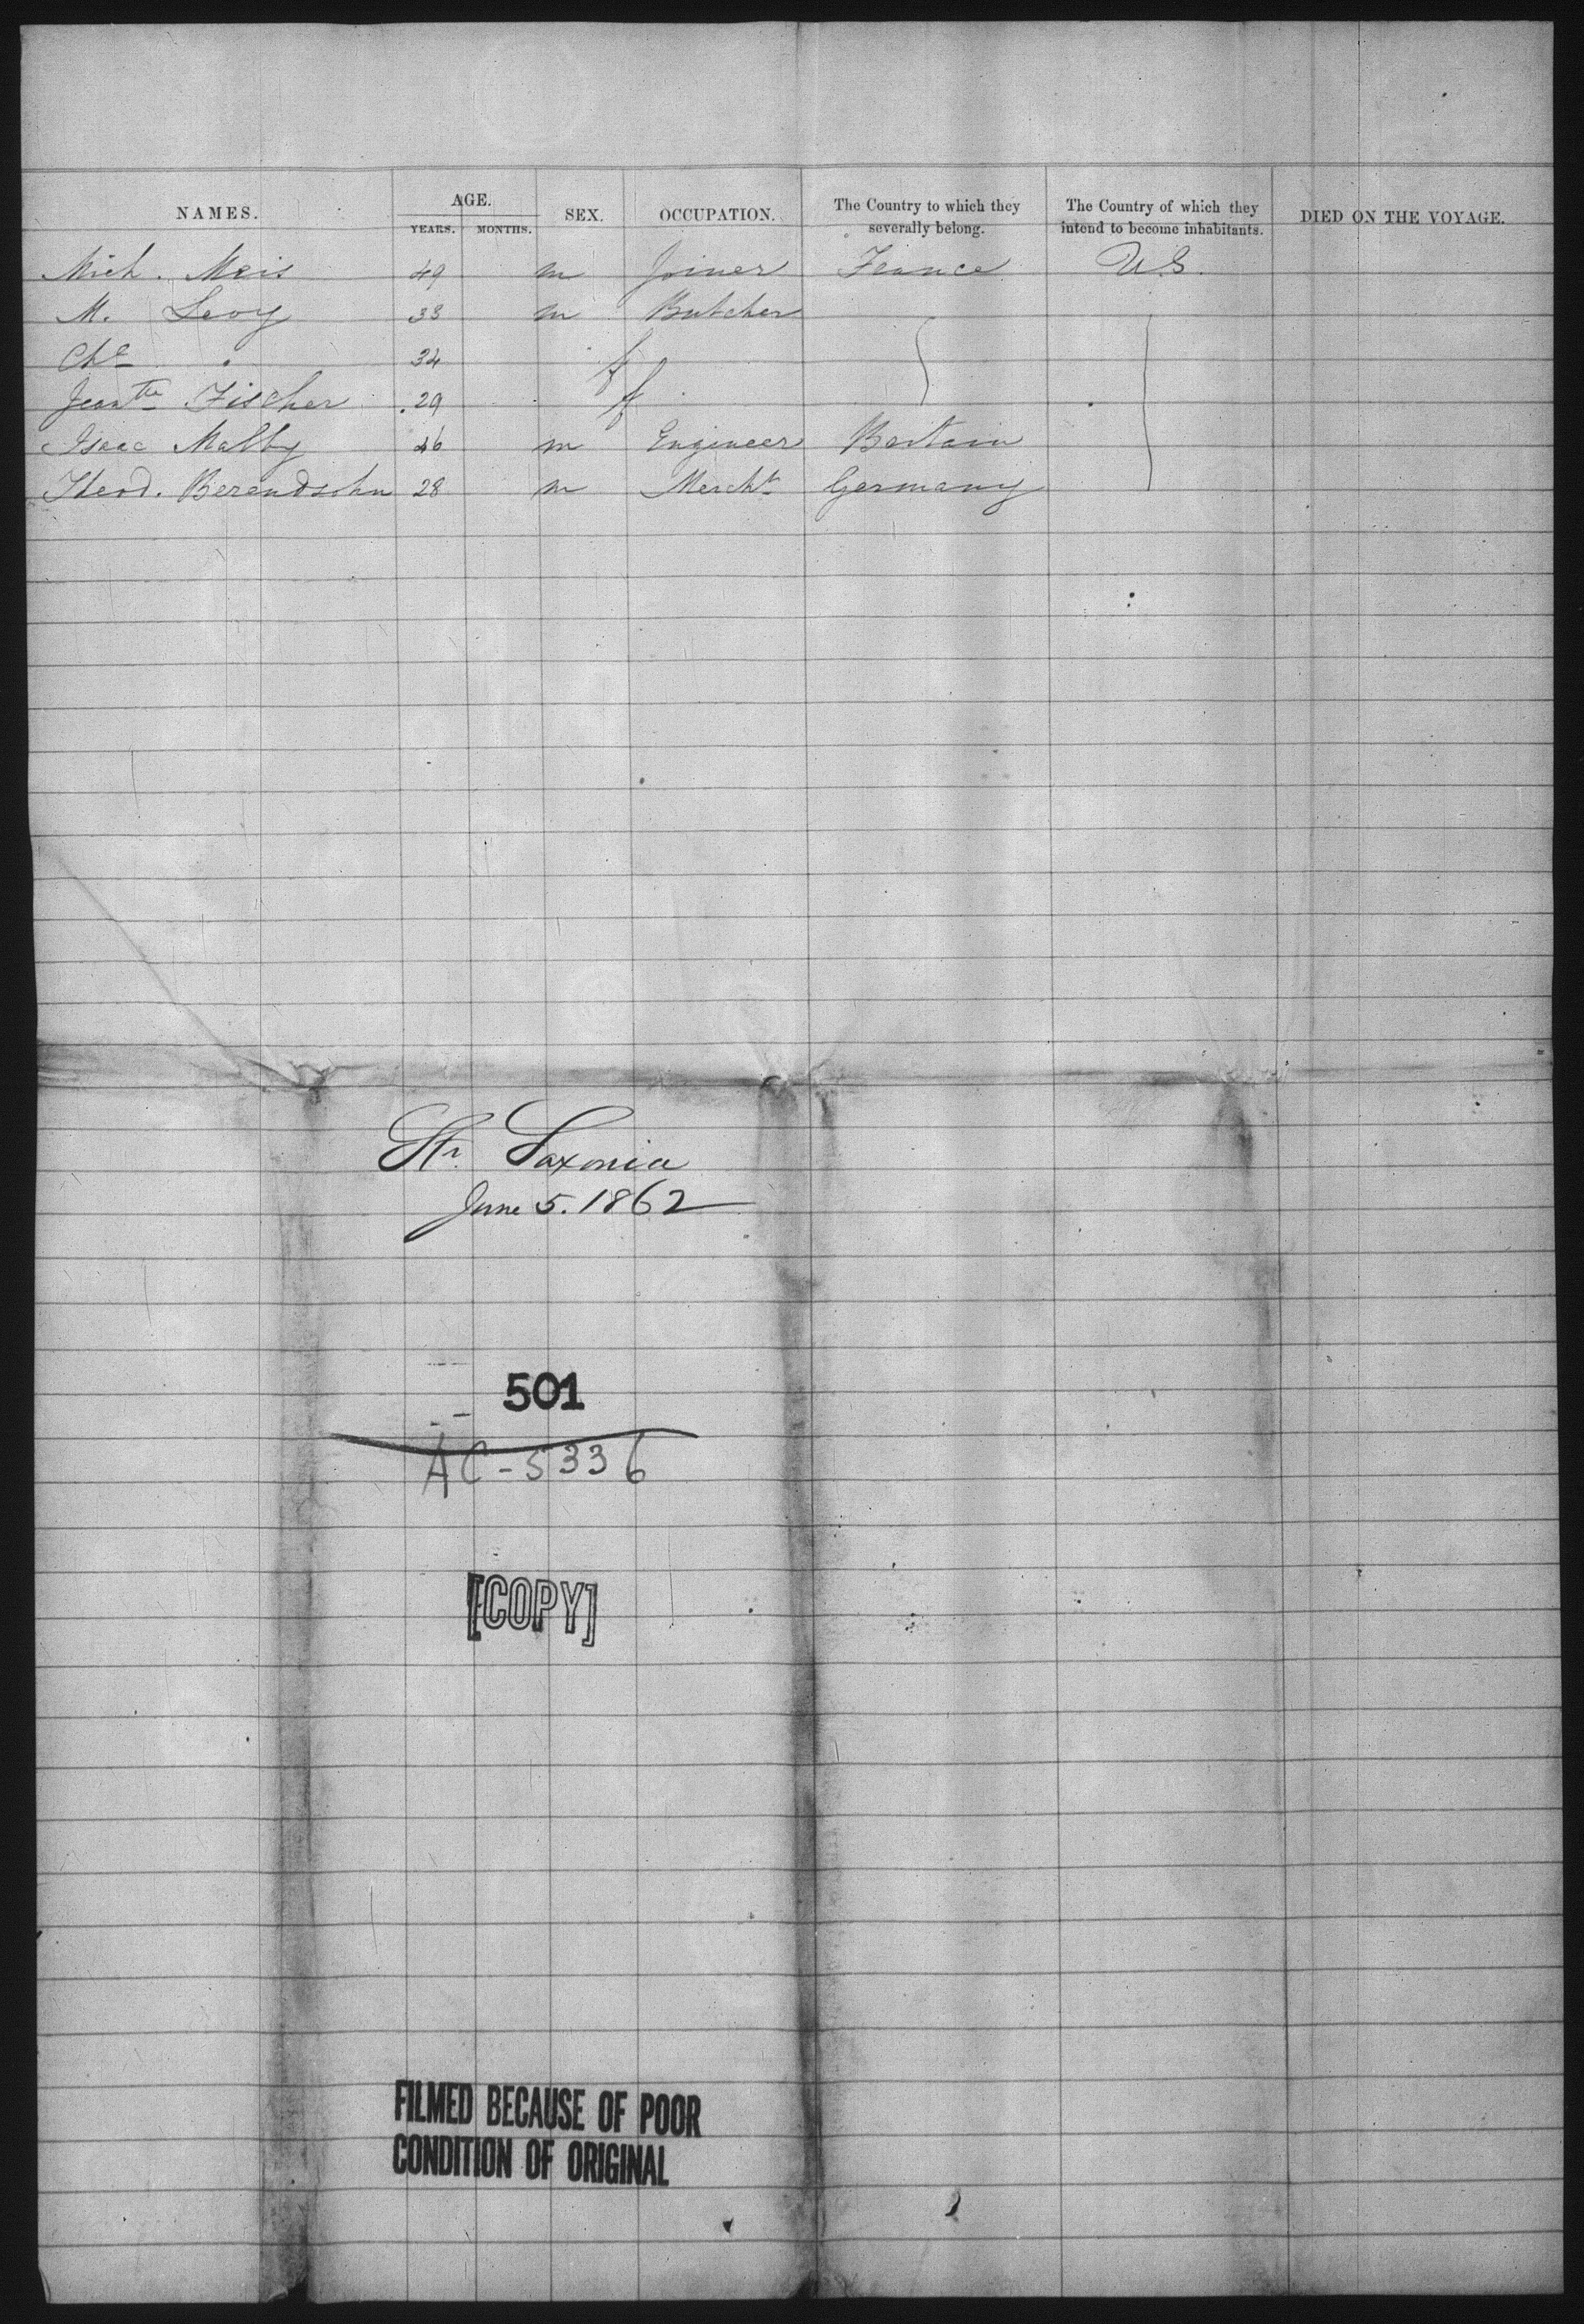 NAMES. AGE. SEX. OCCUPATION. The Country to which they severally belong. The Country of which they intend to become inhabitants. DIED ON THE VOYAGE.
YEARS. MONTHS.
Mich. Meis 49 m Joiner France U.S.
M. Levy 33 m Butcher
34 f
Jeantte Fischer 29 f
Isaac Malby 46 m Engineer Britain
Theod. Berendsohn 28 m Mercht Germany
Str. Saxonia
June 5. 1862
501
AC-5336
[COPY]
FILMED BECAUSE OF POOR
CONDITION OF ORIGINAL